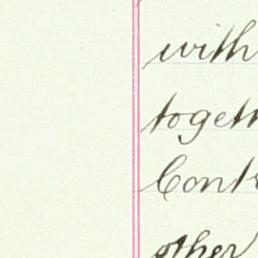 with
togeth
Contr
other